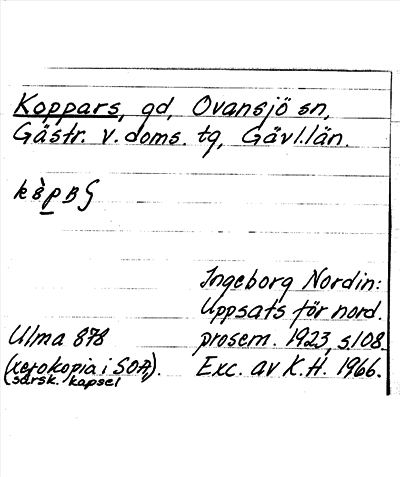 Koppars, gd, Ovansjö sn,
Gästr. v. doms. tg, Gävl.län.
Ingeborg Nordin:
Uppsats för nord.
Ulma 878 prosem. 1923, s.108.
(xerokopia i SOA,). Exc. av K.H. 1966.
särsk. kapsel